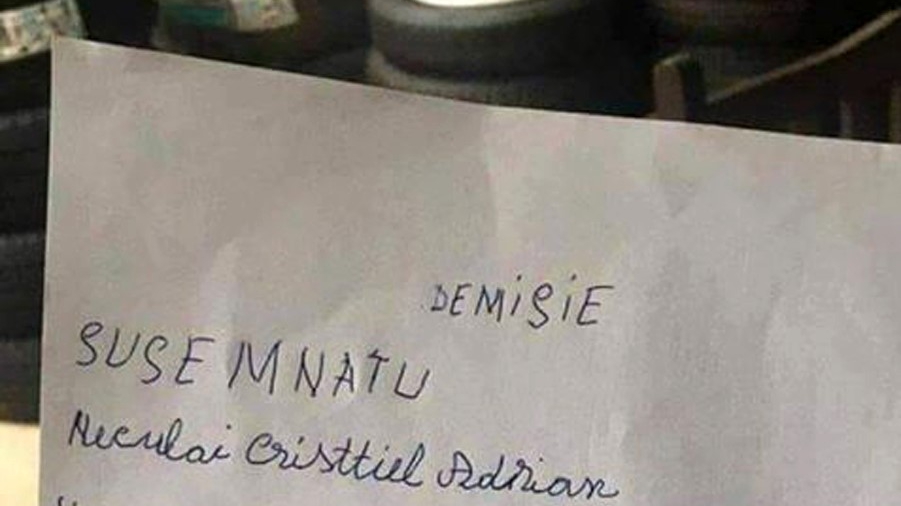 DEMISIE
SUSEMNATU
Neculai Cristtiel Adrian